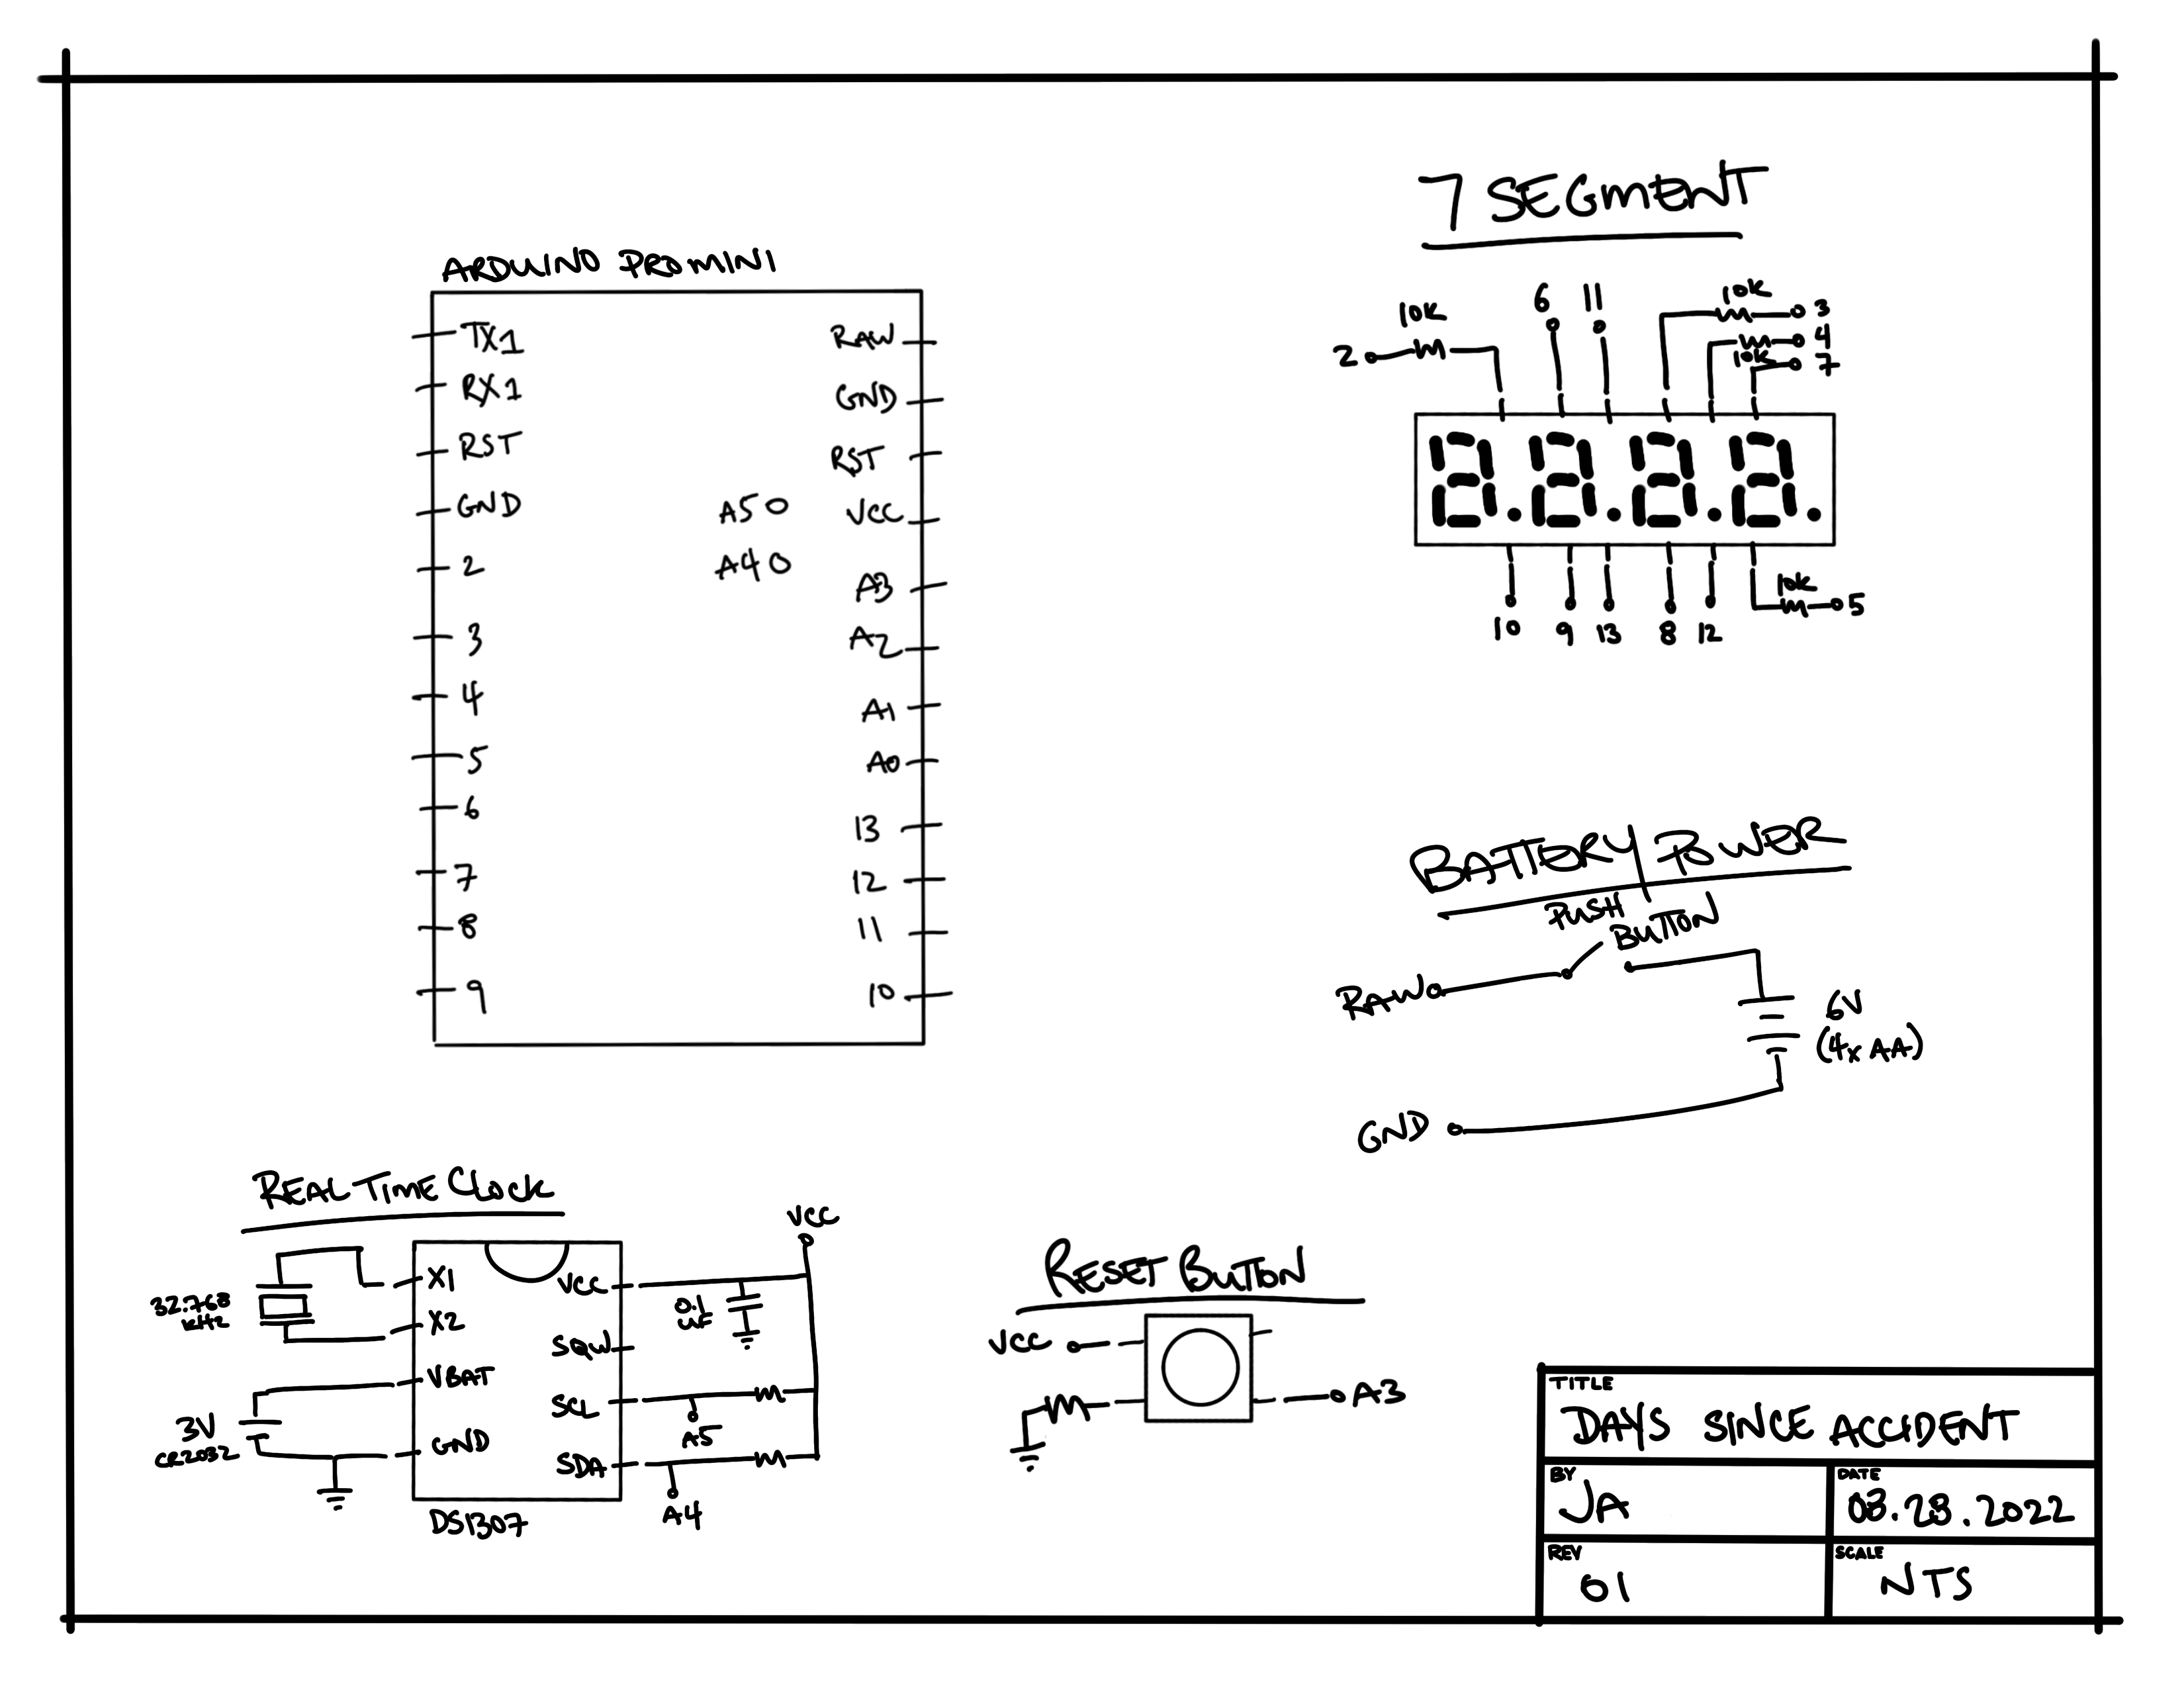 ARDUINO PROMINI
TX1
RX1
RST
GND
2
3
4
5
6
7
8
9
A5
A4
RAW
GND
RST
VCC
A3
A2
A1
A0
13
12
11
10
7 SEGMENT
2 10K
6 11
10K 3
4
10K 7
10 9 13 8 12
10K 5
BATTERY/POWER
PUSH BUTTON
RAW
6V
(4x AA)
GND
REAL TIME CLOCK
32.768
KHZ
X1
X2
VBAT
GND
3V
CR2032
VCC
SQW
SCL
SDA
DS1307
VCC
0.1
UF
A5
A4
RESET BUTTON
VCC
A3
TITLE
DAYS SINCE ACCIDENT
BY
JA
DATE
08.28.2022
REV
01
SCALE
NTS